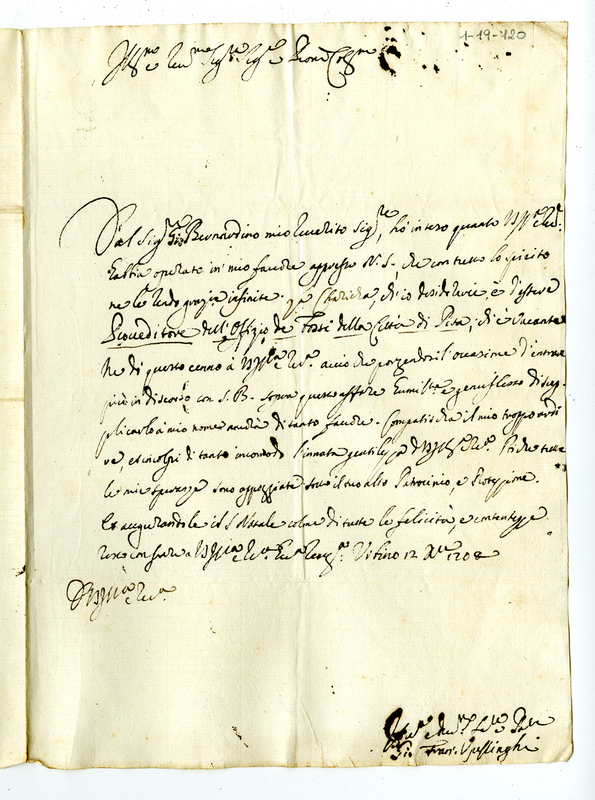 1-19-120
Ill.mo e Rev.mo Sig.re Sig.re e Pron Col.mo
Dal Sig.re Gio Bernardino mio Riverito Sig.re, hò inteso quanto V.S. Ill.ma e Rev.
habbia operato in mio favore appresso N. S. che con tutto lo spirito
ne le rendo grazie infinite. La Charicha, che io desiderarei, è d'essere
Proveditore dell'Offizio de Fossi della Città di Pisa, che è vacante
Ne dò questo cenno à V.S. Ill.ma e Rev.a acciò che porgendosi l'occasione d'entrare
più in discorso con S. B. sopra questo affare Humil.te e genuflesso di sup-
plicarlo à mio nome ancora di tanto favore. Compatischa il mio troppo ardi
re, et incolpi di tanto incomodo l'innata gentilezza di V.S. Ill.ma e Rev.a che tutte
le mie speranze sono appoggiate sotto il suo alto Patrocinio, e Protezzione.
Et augurandole il S. Natale colmo di tutte le felicità, e contentezze
resto con fare a V.S. Ill.ma e Rev.a Hu.ma River.za. Urbino 12 Xbre 1708
D V.S. Ill.ma e Rev.a
Hum.o e Dev.mo Se.re
Gio. Fran. Upezzinghi